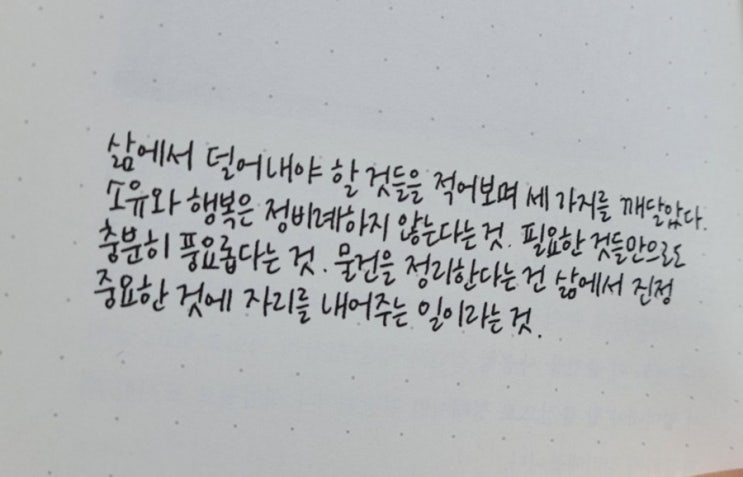 삶에서 덜어내야 할 것들을 적어보며 세 가지를 깨달았다.
소유와 행복은 정비례하지 않는다는 것. 필요한 것들만으로도
충분히 풍요롭다는 것. 물건을 정리한다는 건 삶에서 진정
중요한 것에 자리를 내어주는 일이라는 것.